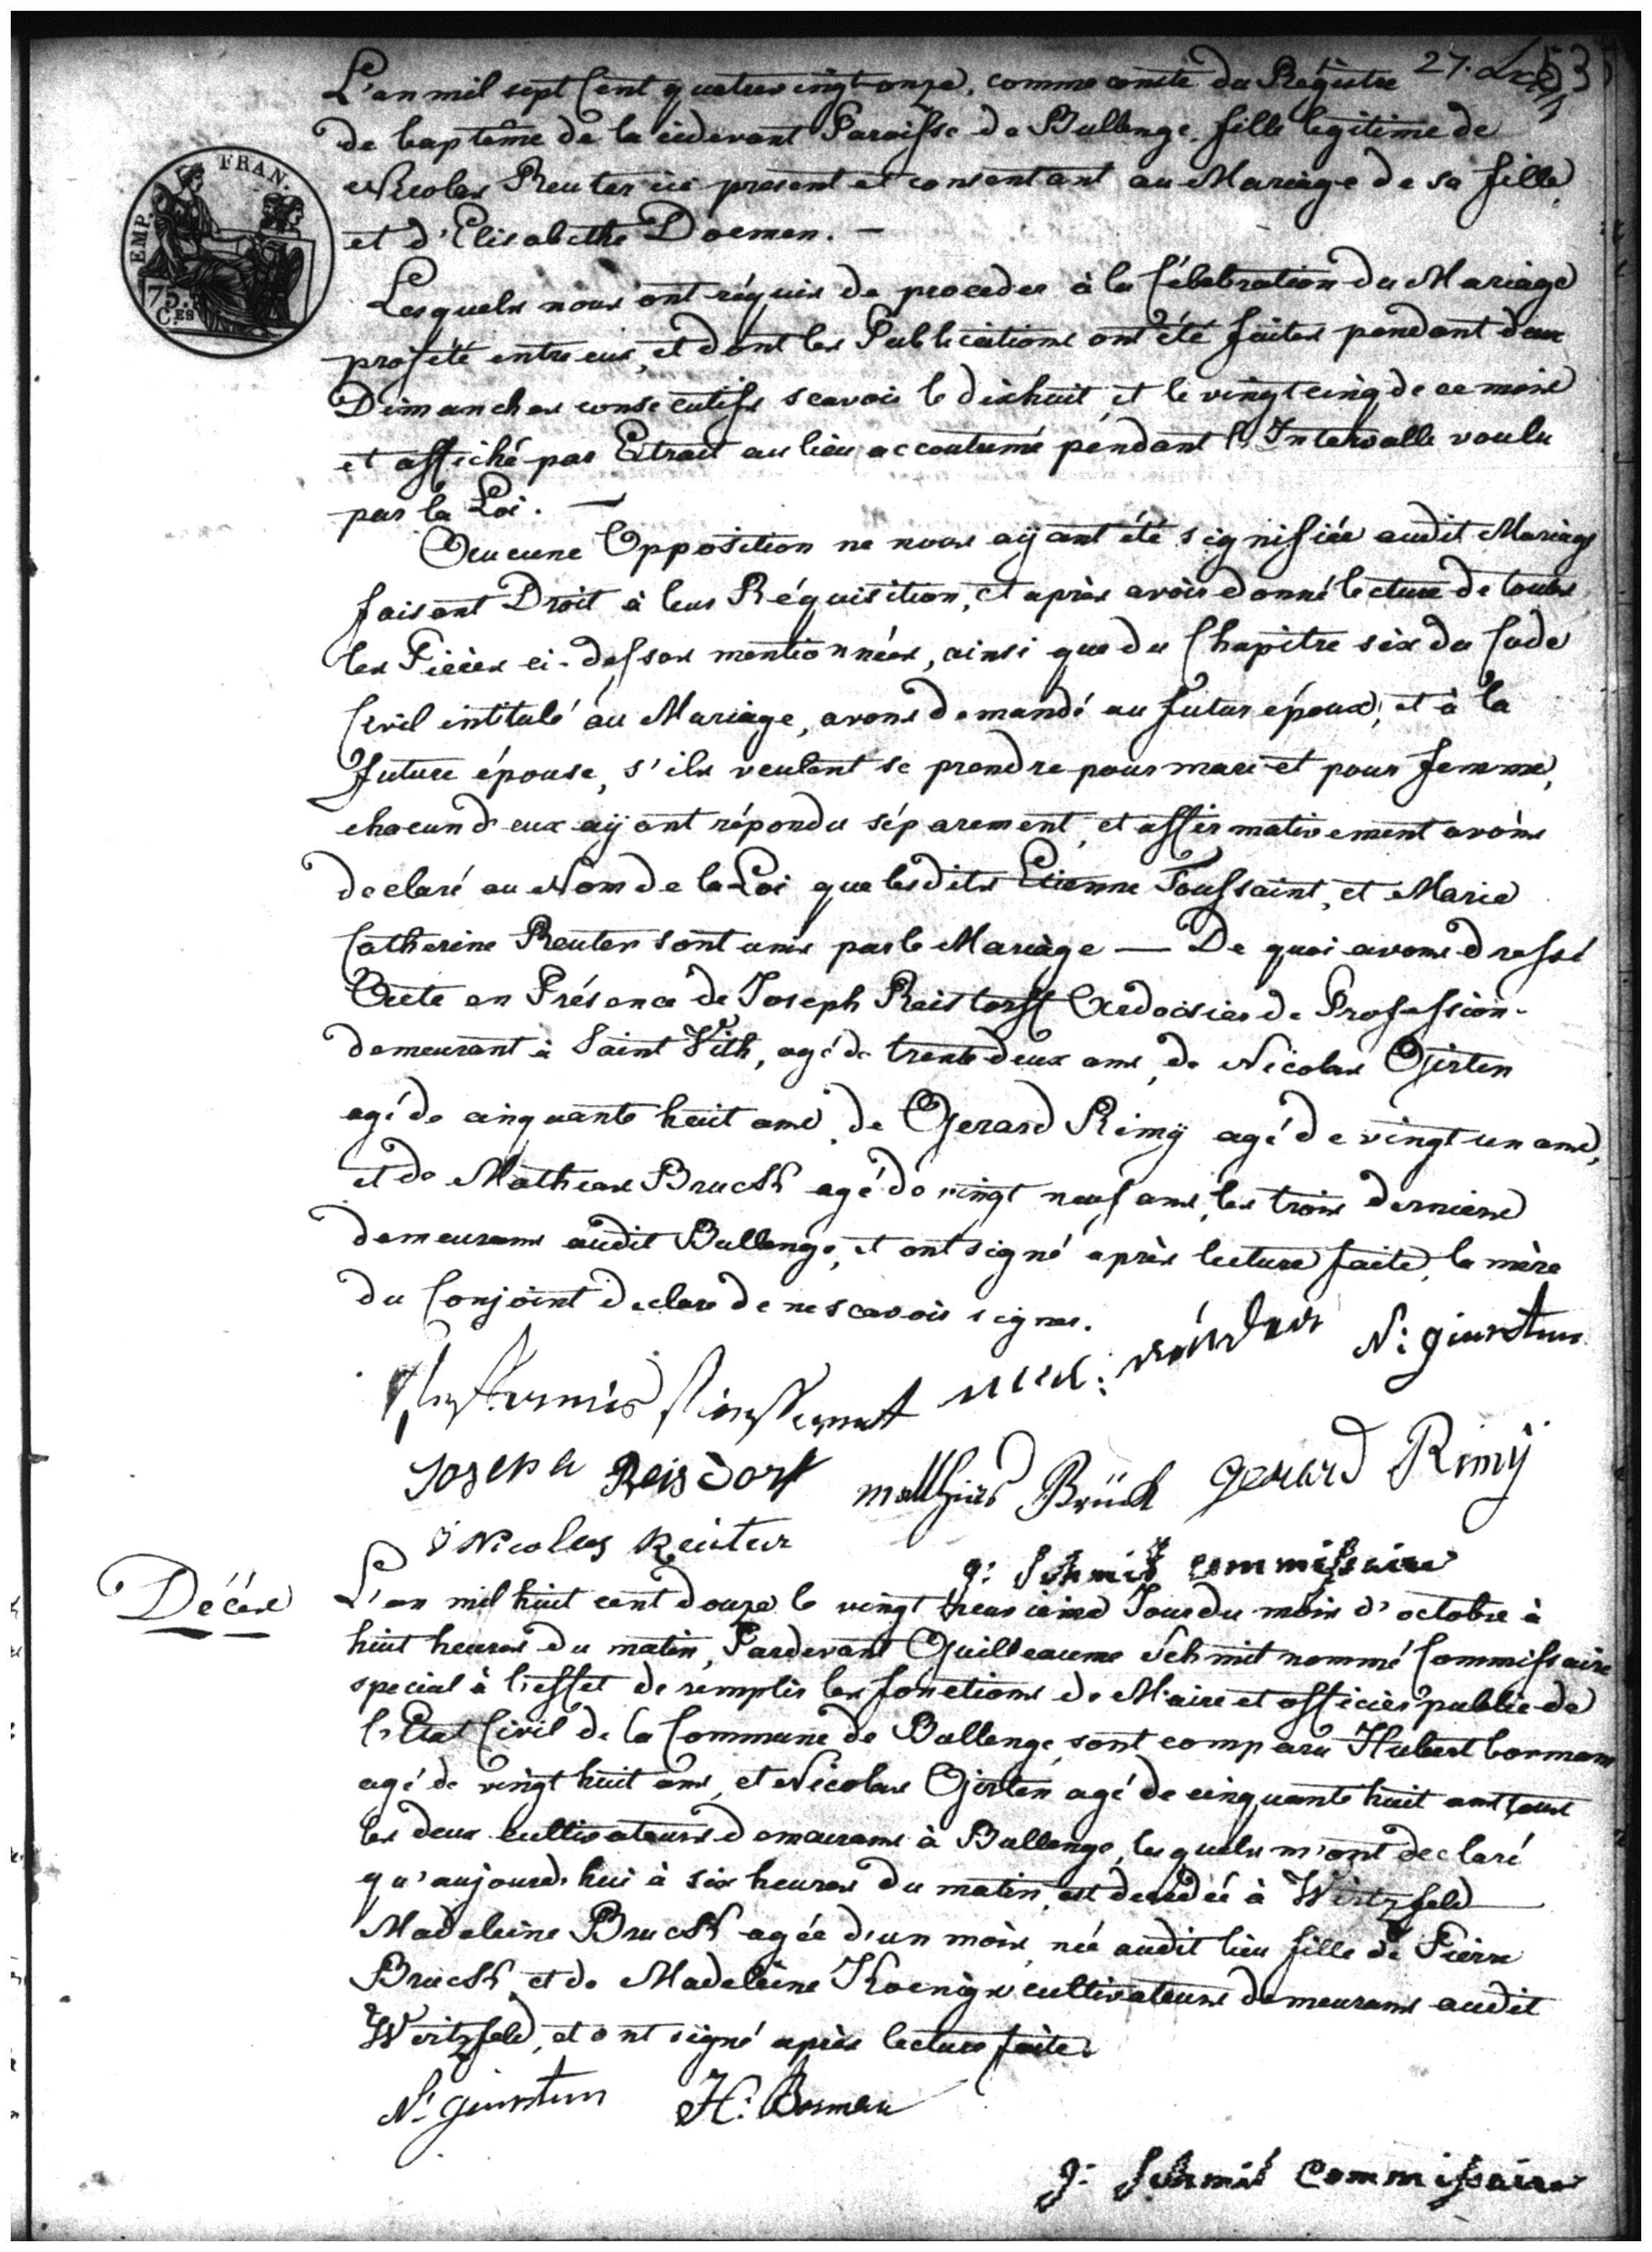 27.
53
L'an mil sept Cent quatrevingt onze, comme conste du Régistre
de baptême de la cidevant Paroisse de Bullenge, fille legitime de
Nicolas Reuter ici present et consentant au Mariage de sa fille,
et d'Elisabethe Doemen. —
FRAN.
EMP.
75.
C.ES
Lesquels nous ont réquis de proceder à la Célebration du Mariage
projété entre eux, et dont les Publications ont été faites pendant deux
Dimanches consecutifs scavoir le dixhuit et le vingtcinq de ce mois
et affiché par Extrait au lieu accoutumé pendant l'Intervalle voulu
par la Loi. —
Aucune Opposition ne nous aÿant été signifiée audit Mariage
faisant Droit à leur Réquisition, et après avoir donné lecture de toutes
les Pièces ci-dessus mentionnées, ainsi que du Chapitre six du Code
Civil intitulé du Mariage, avons demandé au futur époux, et à la
future épouse, s'ils veulent se prendre pour mari et pour femme,
chacun d'eux aÿant répondu séparement, et affirmativement avons
declaré au Nom de la Loi que lesdits Etienne Toussaint, et Marie
Catherine Reuter sont unis par le Mariage — De quoi avons dressé
Acte en Présence de Joseph Reistorff de Profession
demeurant à Saint Vith, agé de trente deux ans, de Nicolas Girten
agé de cinquante huit ans, de Gerard Rimÿ agé de vingt un ans,
et de Mathias Bruch agé de vingt neuf ans, les trois derniers
demeurans audit Bullenge, et ont signé après lecture faite, la mère
du Conjoint declare de ne scavoir signer.
N: giurtten
Joseph Reisdorf Matthias Brück gerard Rimÿ
Nicolas Reuter
g: Schmit commissaire
Décès
L'an mil huit cent douze le vingt Jour du mois d'octobre à
huit heures du matin, Pardevant Guilleaume Schmit nommé Commissaire
special à l'effet de remplir les fonctions de Maire et officier public de
l'Etat Civil de la Commune de Bullenge, sont comparu Hubert Bormann
agé de vingt huit ans, et Nicolas Girten agé de cinquante huit ans tous
les deux cultivateurs demeurans à Bullenge, lesquels m'ont declaré
qu'aujourd'hui à six heures du matin, est decedée à Wirtzfeld
Madeleine Bruch agée d'un mois, née audit lieu fille de Pierre
Bruch, et de Madeleine Koenigs cultivateurs demeurans audit
Wirtzfeld, et ont signé après lecture faite.
N: giurtten H: Borman
g: Schmit Commissaire